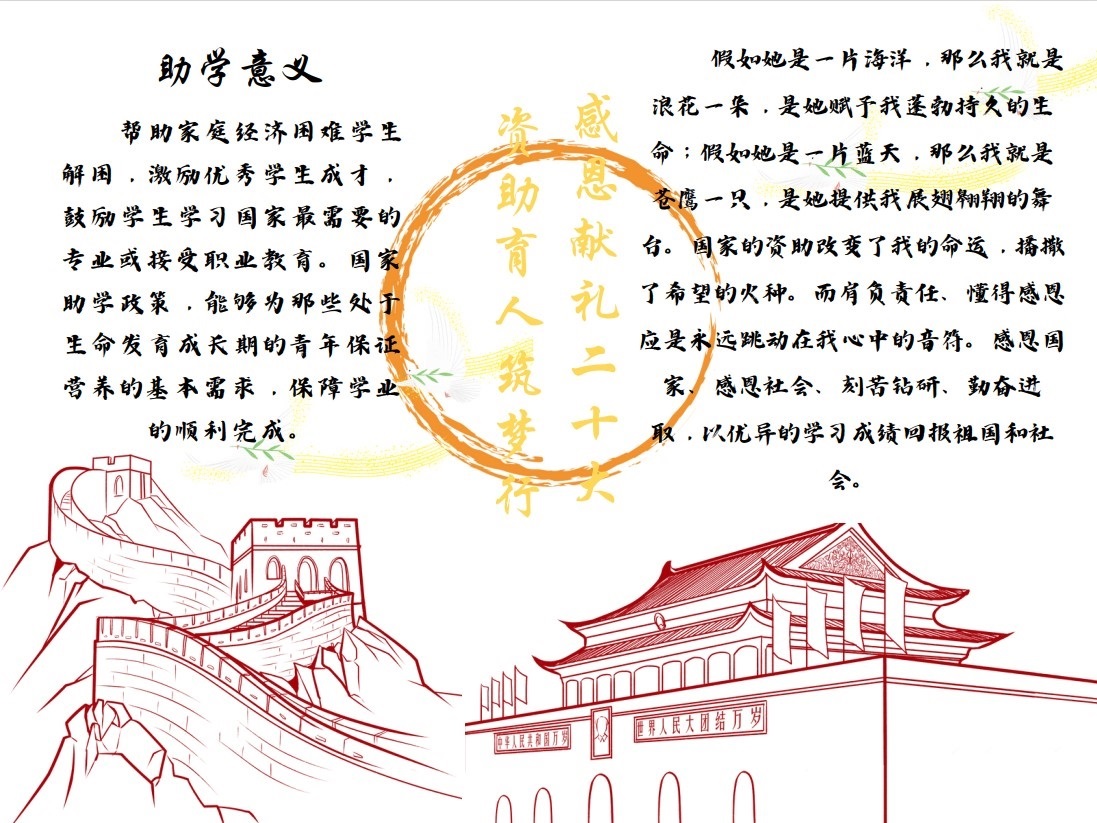 助学意义
帮助家庭经济困难学生
解困，激励优秀学生成才，
鼓励学生学习国家最需要的
专业或接受职业教育。国家
助学政策，能够为那些处于
生命发育成长期的青年保证
营养的基本需求，保障学业
的顺利完成。
感恩献礼二十大
资助育人筑梦行
假如她是一片海洋，那么我就是
浪花一朵，是她赋予我蓬勃持久的生
命；假如她是一片蓝天，那么我就是
苍鹰一只，是她提供我展翅翱翔的舞
台。国家的资助改变了我的命运，播撒
了希望的火种。而肩负责任、懂得感恩
应是永远跳动在我心中的音符。感恩国
家、感恩社会、刻苦钻研、勤奋进
取，以优异的学习成绩回报祖国和社
会。
中华人民共和国万岁
世界人民大团结万岁